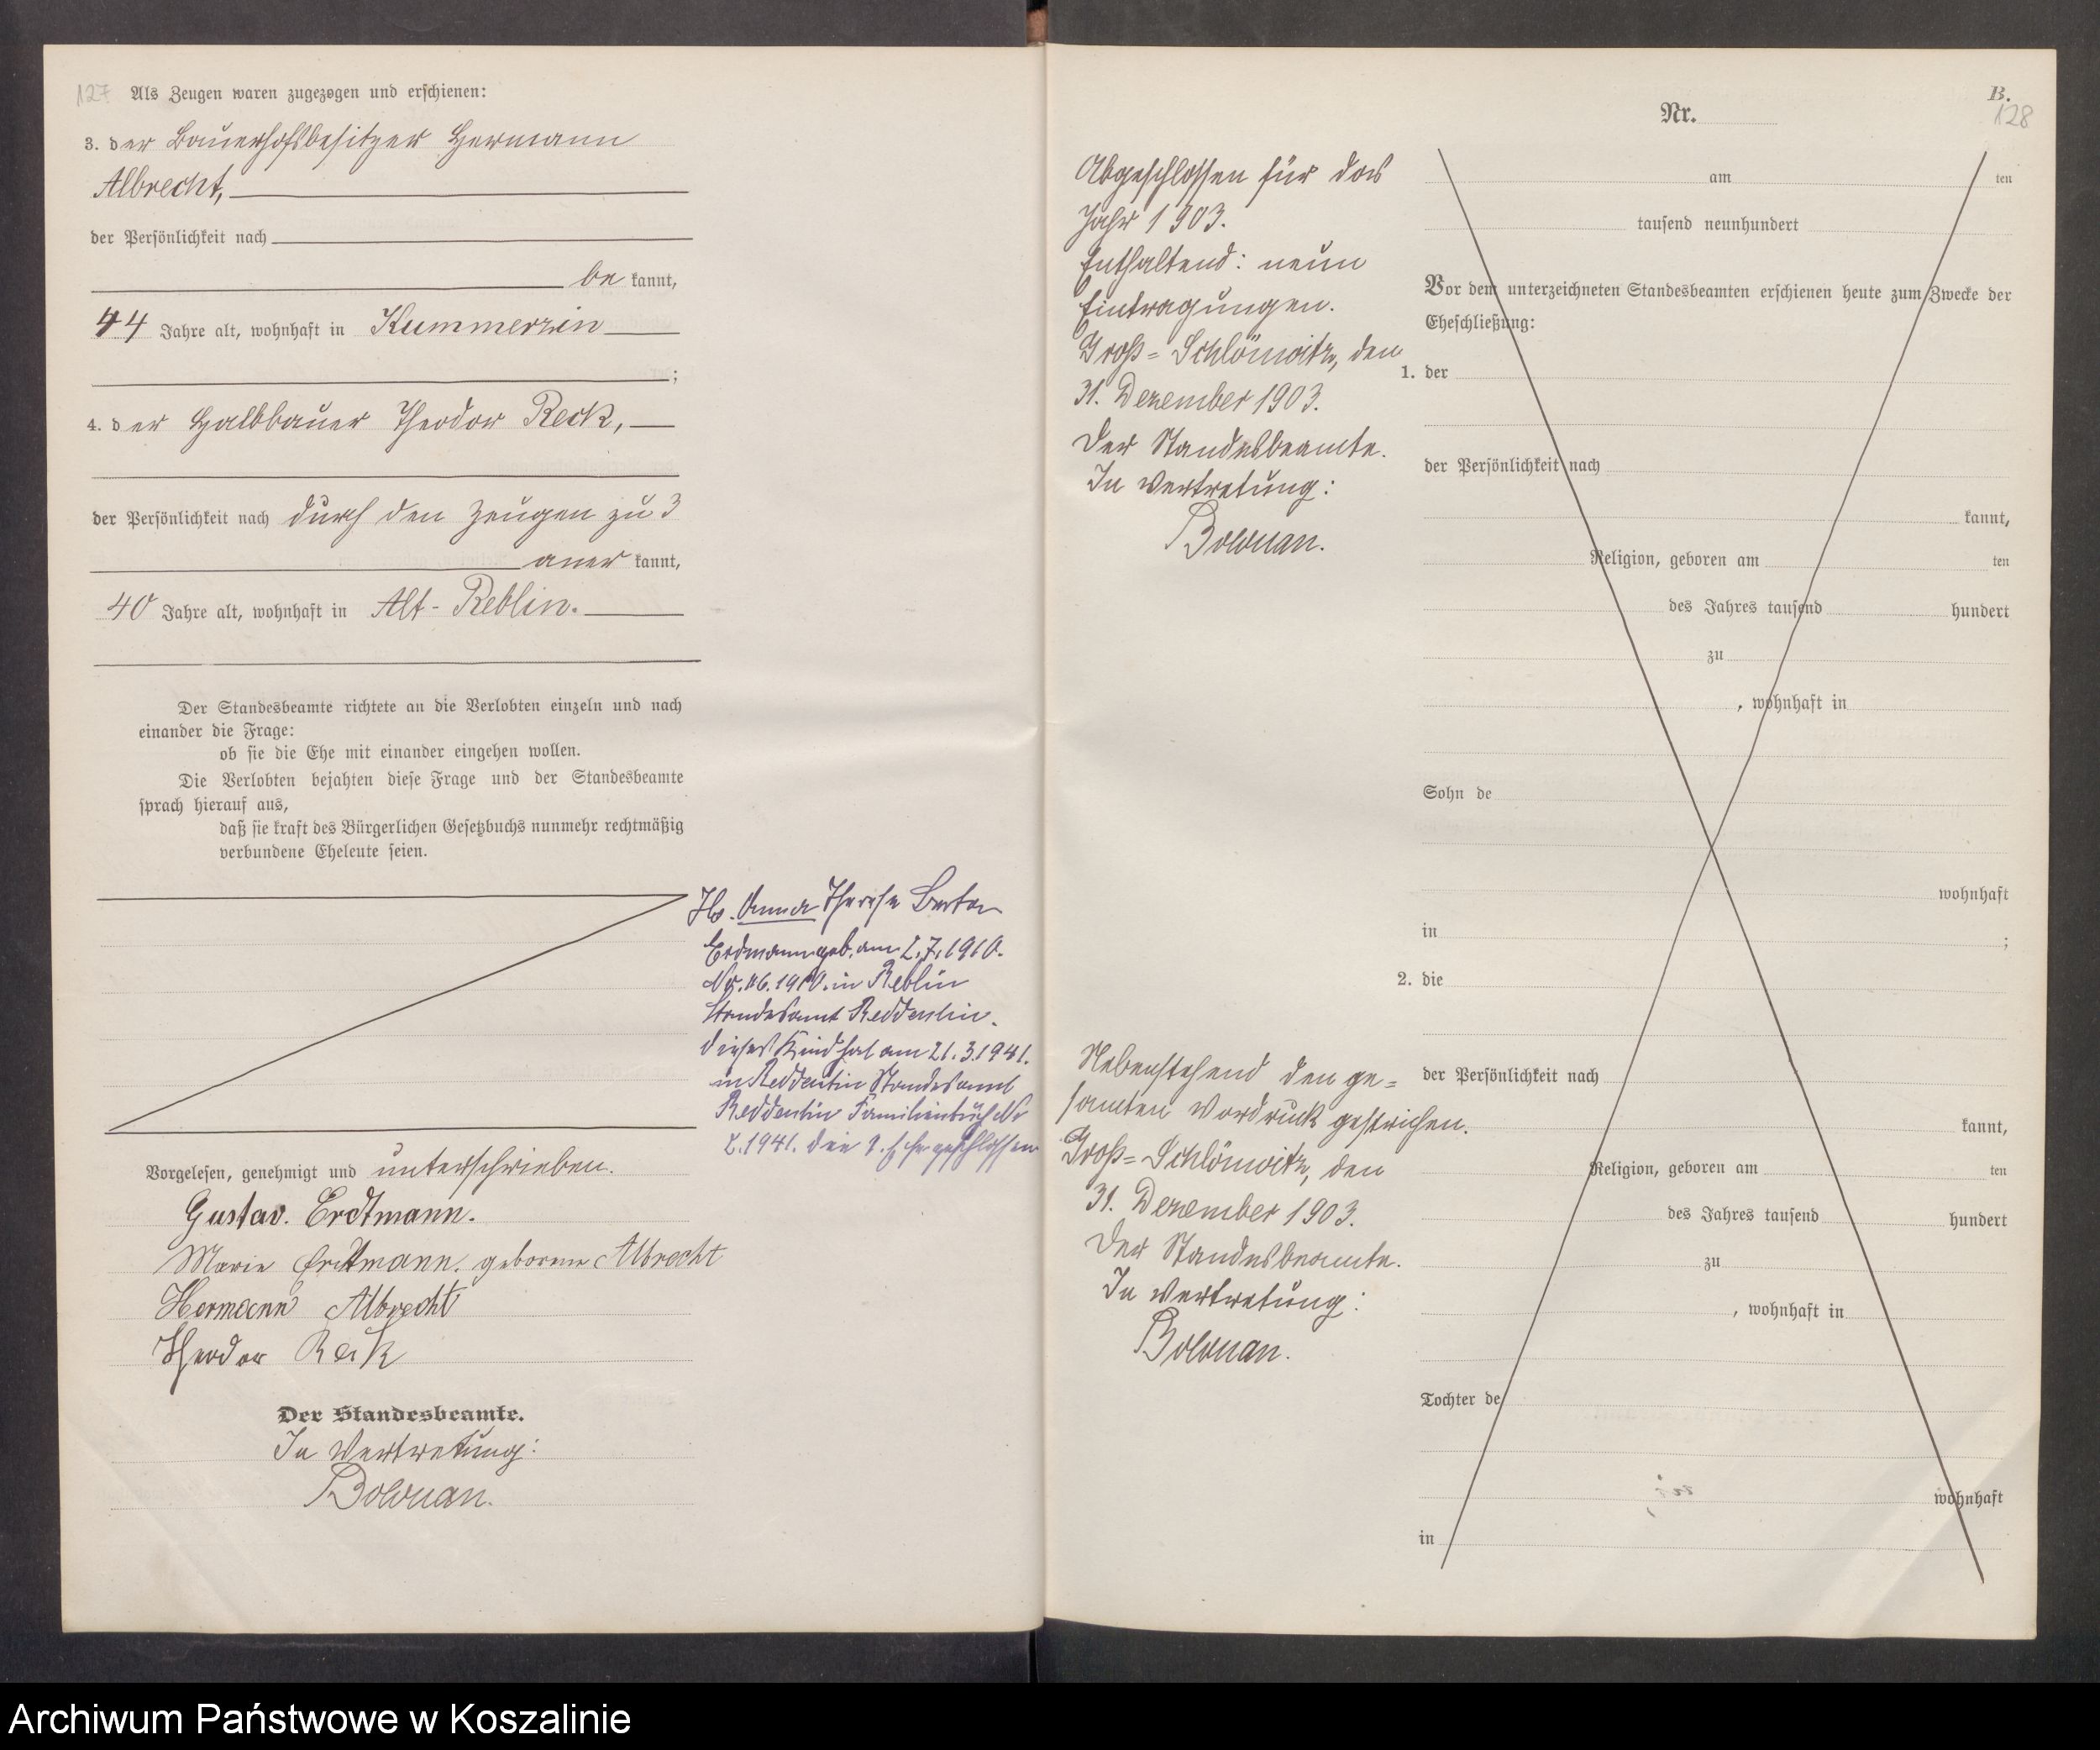 127 Als Zeugen waren zugezogen und erschienen:
3. der Bauerhofsbesitzer Hermann
Albrecht,
der Persönlichkeit nach
be kannt,
44 Jahre alt, wohnhaft in Kummerzin
;
4. der Halbbauer Theodor Reck,
der Persönlichkeit nach durch den Zeugen zu 3
aner kannt,
40 Jahre alt, wohnhaft in Alt-Reblin.
Der Standesbeamte richtete an die Verlobten einzeln und nach
einander die Frage:
ob sie die Ehe mit einander eingehen wollen.
Die Verlobten bejahten diese Frage und der Standesbeamte
sprach hierauf aus,
daß sie kraft des Bürgerlichen Gesetzbuchs nunmehr rechtmäßig
verbundene Eheleute seien.
Anna Therese Berta
Erdmann geb. am 2.7.1910.
in Reblin
Standesamt Reddentin.
dieses Kind hat am 21.3.1941.
in Reddentin Standesamt
Reddentin Familienbuch Nr
2.1941. die 1. Ehe geschlossen
Vorgelesen, genehmigt und unterschrieben.
Gustav. Erdtmann.
Marie Erdtmann. geborene Albrecht
Hermann Albrecht
Theodor Reck
Der Standesbeamte.
In Vertretung:
B.
Nr.
128
Abgeschlossen für das
Jahr 1903.
Enthaltend: neun
Eintragungen.
Groß-Schlönwitz, den
31. Dezember 1903.
Der Standesbeamte.
In Vertretung:
am ten
tausend neunhundert
Vor dem unterzeichneten Standesbeamten erschienen heute zum Zwecke der
Eheschließung:
1. der
der Persönlichkeit nach
kannt,
Religion, geboren am ten
des Jahres tausend hundert
zu
, wohnhaft in
Sohn de
wohnhaft
in ;
2. die
Nebenstehend den ge=
samten Vordruck gestrichen.
Groß=Schlönwitz, den
31. Dezember 1903.
Der Standesbeamte.
In Vertretung:
der Persönlichkeit nach
kannt,
Religion, geboren am ten
des Jahres tausend hundert
zu
, wohnhaft in
Tochter de
wohnhaft
in
Archiwum Państwowe w Koszalinie